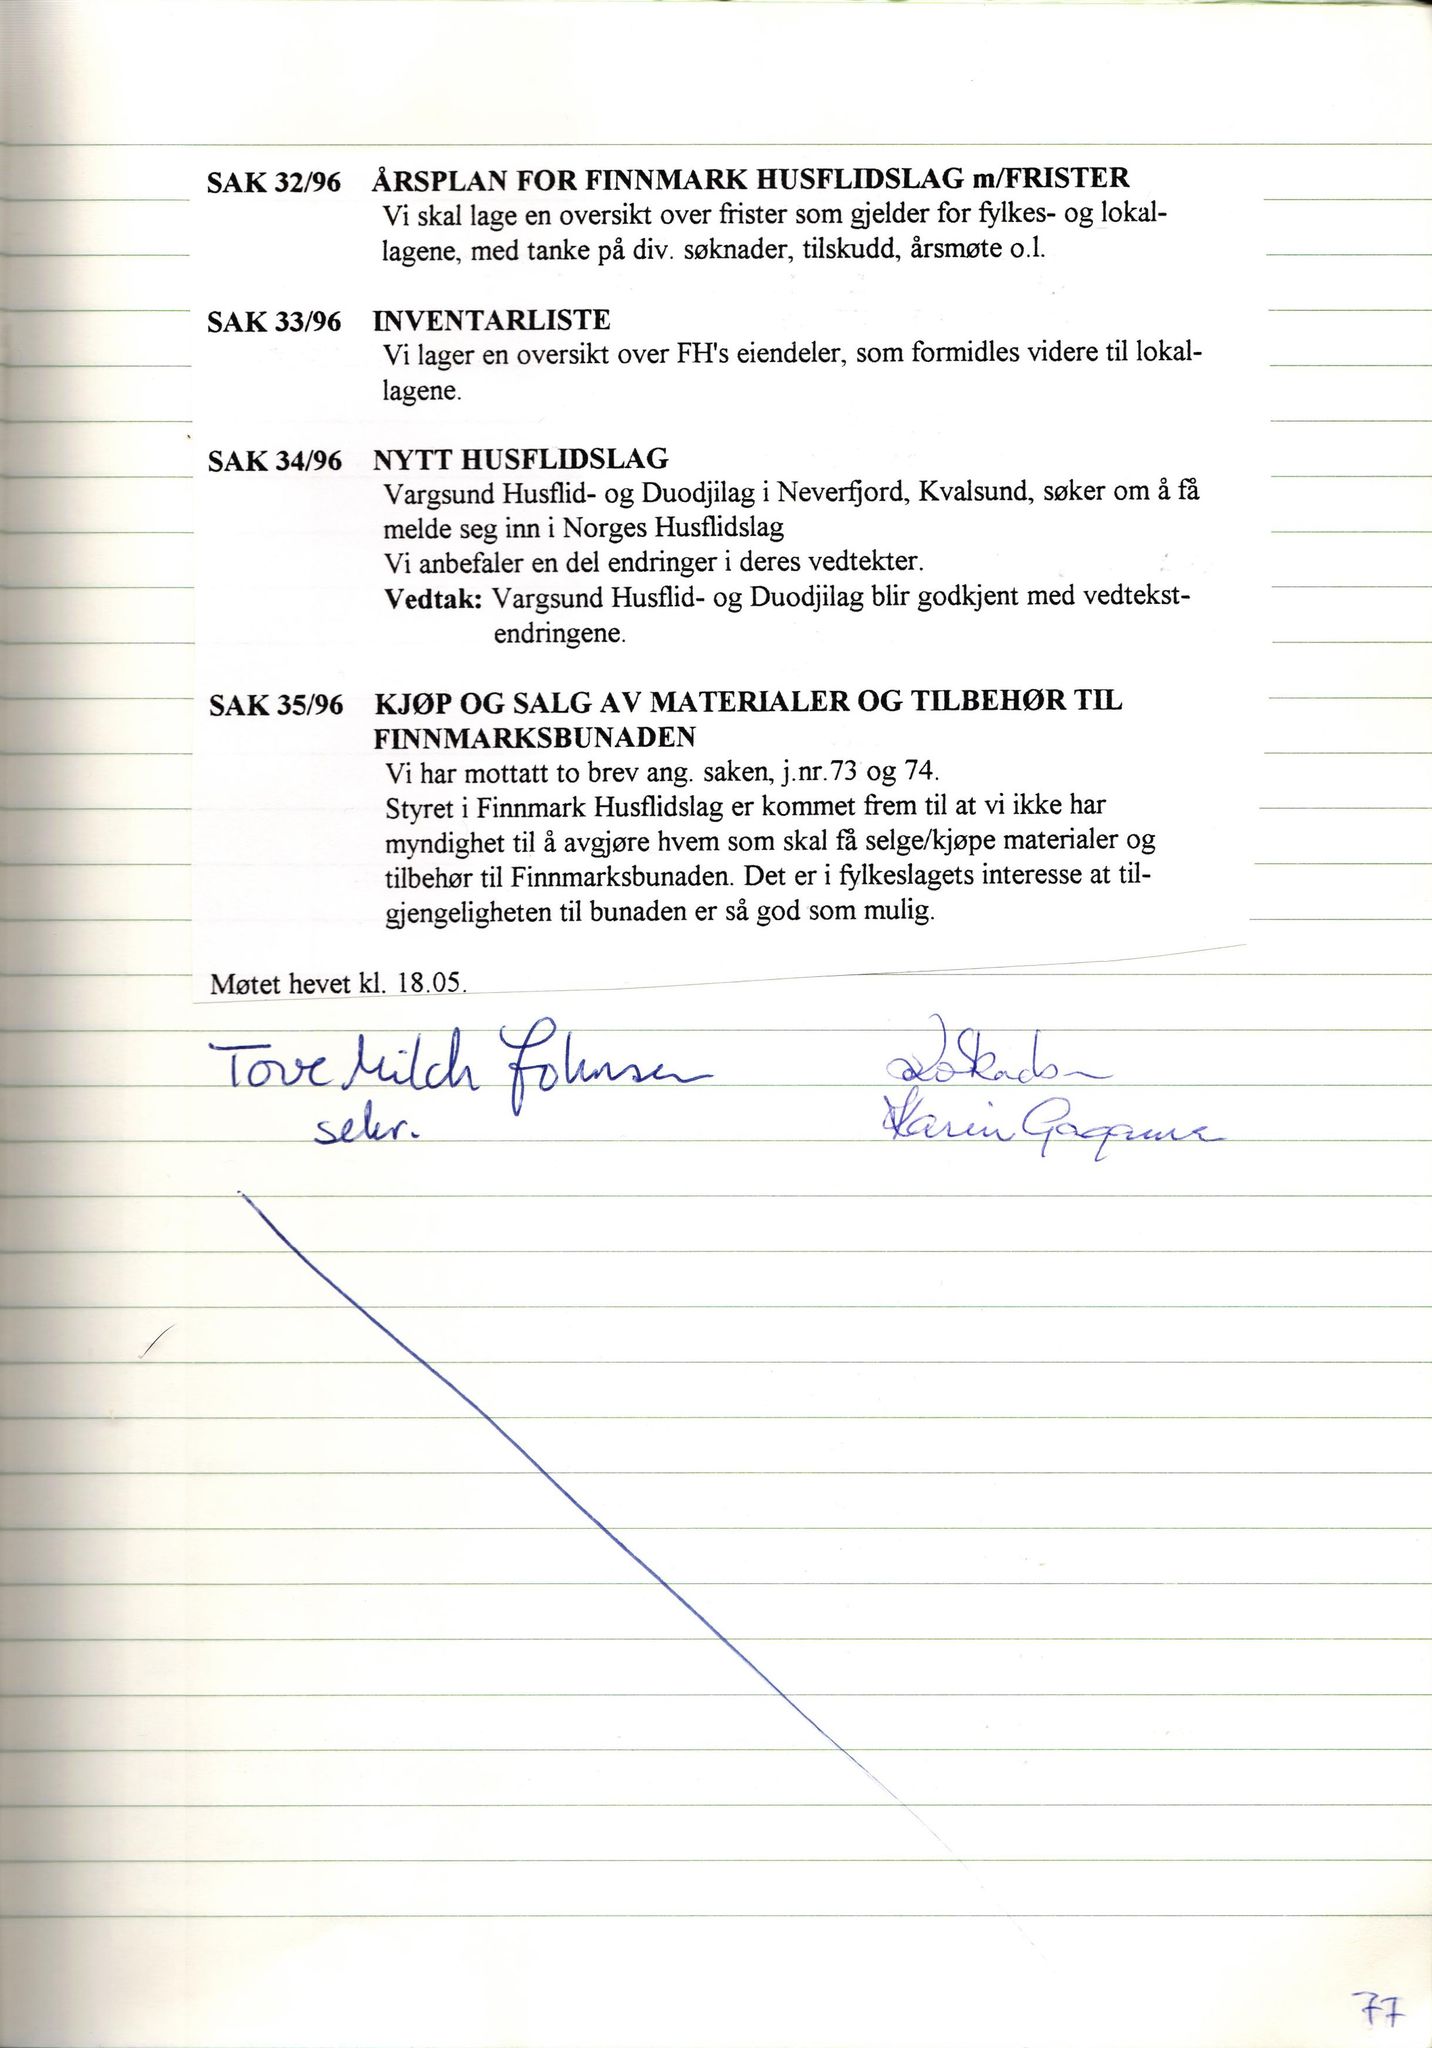 SAK 32/96 ÅRSPLAN FOR FINNMARK HUSFLIDSLAG m/FRISTER
Vi skal lage en oversikt over frister som gjelder for fylkes- og lokal-
lagene, med tanke på div. søknader, tilskudd, årsmøte o.l.
SAK 33/96 INVENTARLISTE
Vi lager en oversikt over FH's eiendeler, som formidles videre til lokal-
lagene.
SAK 34/96 NYTT HUSFLIDSLAG
Vargsund Husflid- og Duodjilag i Neverfjord, Kvalsund, søker om å få
melde seg inn i Norges Husflidslag
Vi anbefaler en del endringer i deres vedtekter.
Vedtak: Vargsund Husflid- og Duodjilag blir godkjent med vedtekst-
endringene.
SAK 35/96 KJØP OG SALG AV MATERIALER OG TILBEHØR TIL
FINNMARKSBUNADEN
Vi har mottatt to brev ang. saken, j.nr.73 og 74.
Styret i Finnmark Husflidslag er kommet frem til at vi ikke har
myndighet til å avgjøre hvem som skal få selge/kjøpe materialer og
tilbehør til Finnmarksbunaden. Det er i fylkeslagets interesse at til-
gjengeligheten til bunaden er så god som mulig.
Møtet hevet kl. 18.05.
Tove Milch Johnsen
sekr.
Karin
77